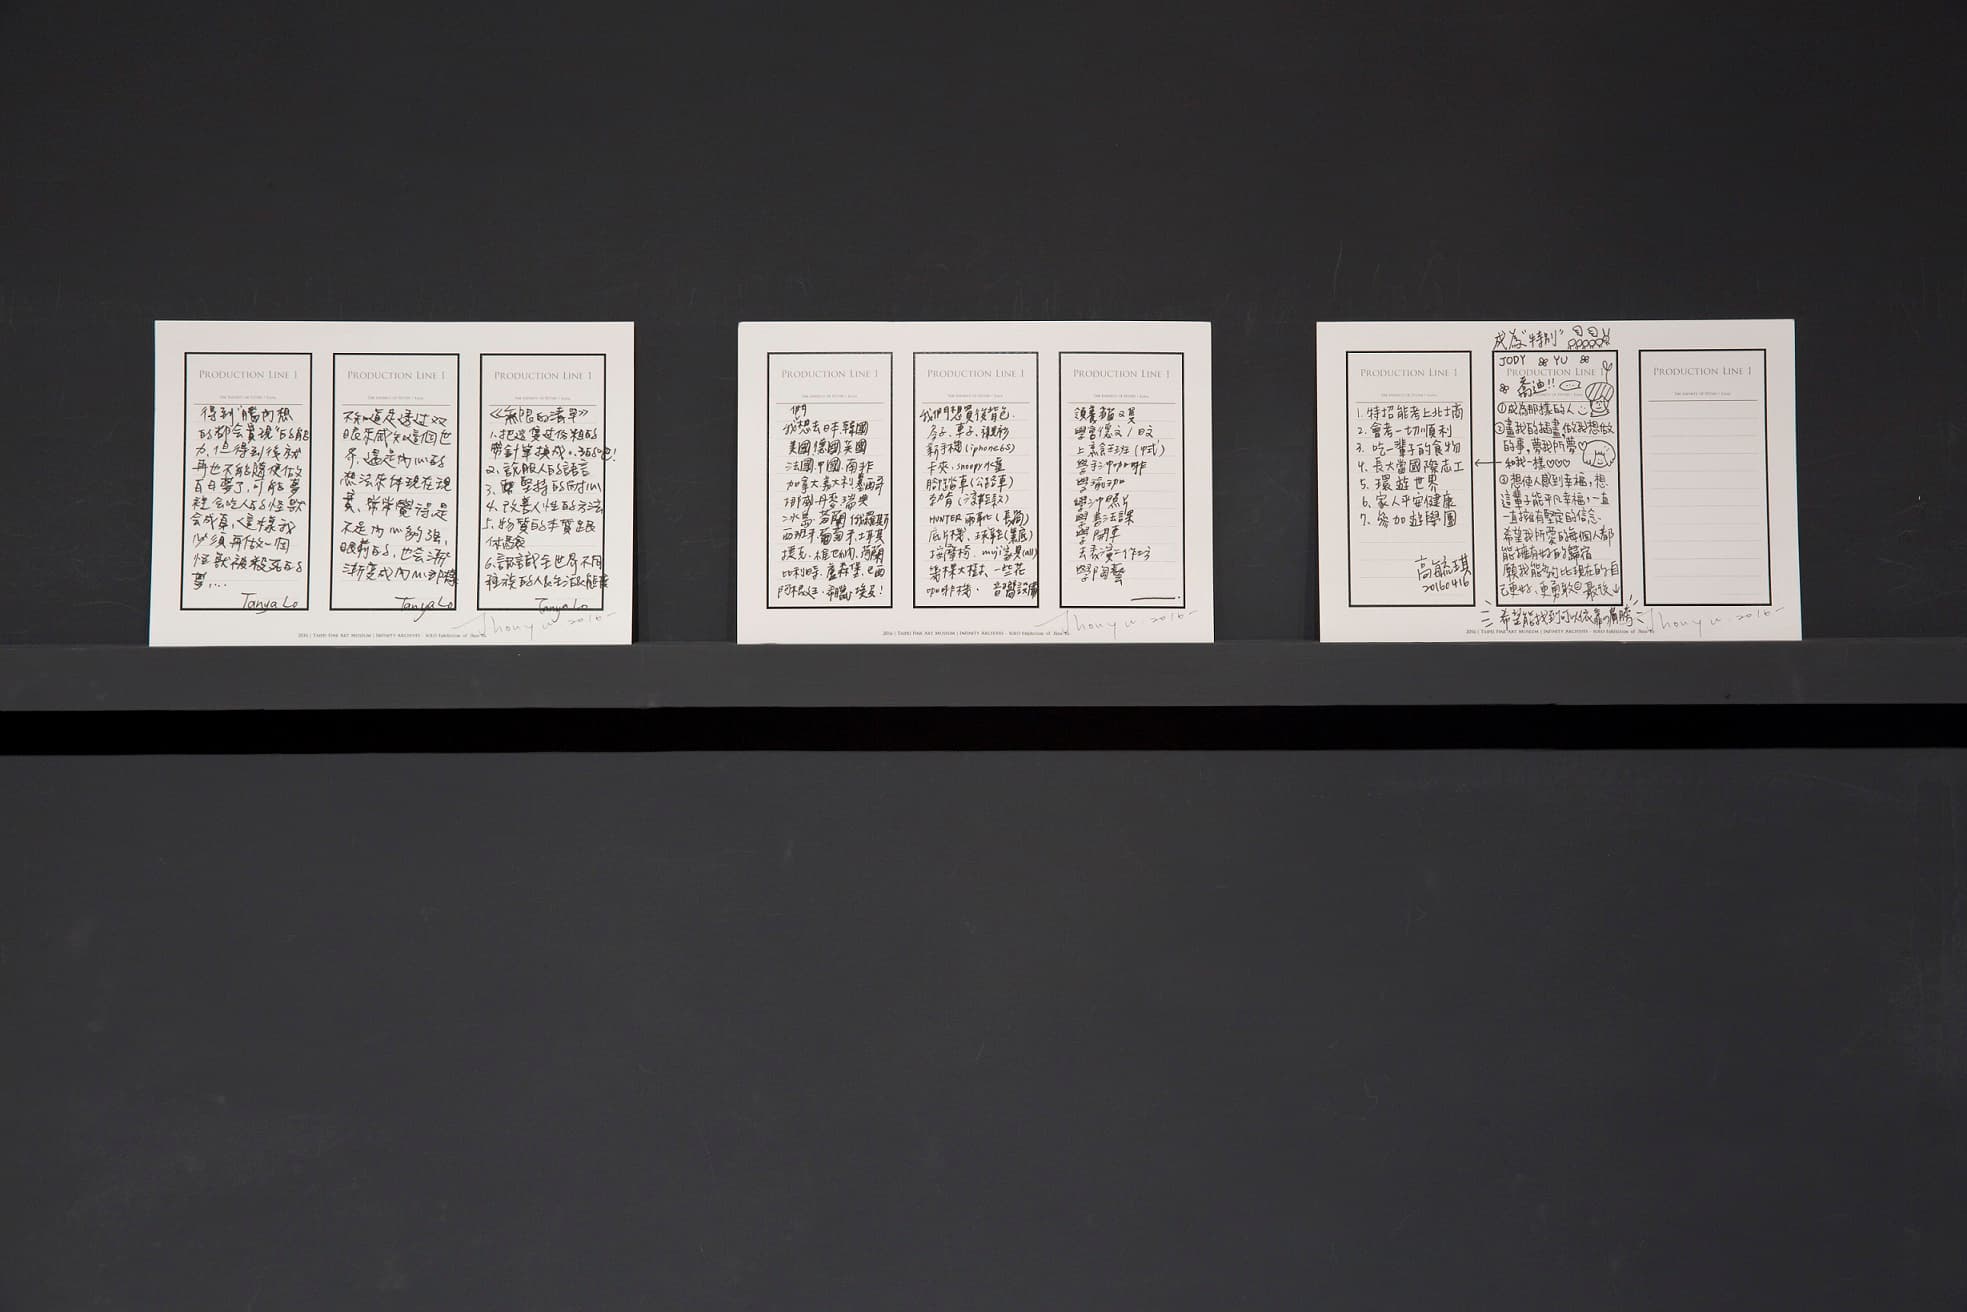 PRODUCTION LINE 1
得到"腦內想
的都會實現"的能
力,但得到後就
再也不能隨便做
白日夢了,可能夢
裡會吃人的怪獸
會成真,這樣我
必須再做一個
怪獸被殺死的
夢...
Tanya Lo
PRODUCTION LINE 1
不知道是透過双
眼來感知這個世
界,還是內心的
想法來体現在視
覺、常常覺得是
不是內心夠強,
眼前的,也会漸
漸變成內心那樣
Tanya Lo
PRODUCTION LINE 1
《無限的清單》
1.把這隻過份粗的
帶針筆換成0.3的吧!
2.說服人的語言
3.堅持的耐心
4.改善人性的方法
5.物質的本質跟
体
6.認識全世界不同
種族的人&生活&能
Tanya Lo
2016 | TAIPEI FINE ART MUSEUM | INFINITY ARCHIVES - SOLO EXHIBITION OF
2016
PRODUCTION LINE 1
們
我想去日本,韓國
美國!德國英國
法國,中國,南非
加拿大義大利墨西哥
挪威丹麥瑞典
冰島 芬蘭 俄羅斯
西班牙葡萄牙土耳其
捷克、荷蘭
比利時、盧森堡、巴西
阿根廷、希臘、埃及!
PRODUCTION LINE 1
我們想買後背包.
房子、車子、襯衫
新手機(iphone6s)
卡夾、snoopy
腳踏車(公路車)
HUNTER 雨靴(長筒)
底片機、球鞋(黑底)
按摩椅.
幾棵大樹、一些花
咖啡機、音響設備
PRODUCTION LINE 1
領養貓2隻
學習德文/日文
上烹飪班(中式)
學手沖咖啡
學瑜珈
學沖照片
學書法課
學開車
去表演工作坊
學陶藝
2016 | TAIPEI FINE ART MUSEUM | INFINITY ARCHIVES - SOLO EXHIBITION OF
2016
PRODUCTION LINE 1
1.特招能考上北士商
2.會考一切順利
3.吃一輩子的食物
4.長大當國際志工
5.環遊世界
6.家人平安健康
7.參加遊學團
高毓琪
20160416
成為"特別"
JODY YU
PRODUCTION LINE 1
喬迪!!
①成為那樣的人
②畫我的插畫,做我想做
的事,夢我所夢
和我一樣♡♡♡
③想使人感到幸福,想
這輩子能平凡幸福,一直
一直擁有堅定的信念
希望我所愛的每個人都
能擁有好的歸宿
願我能夠比現在的自
己更好、更勇敢 最後↓
希望能找到可以依靠的肩膀
PRODUCTION LINE 1
2016 | TAIPEI FINE ART MUSEUM | INFINITY ARCHIVES - SOLO EXHIBITION OF
2016